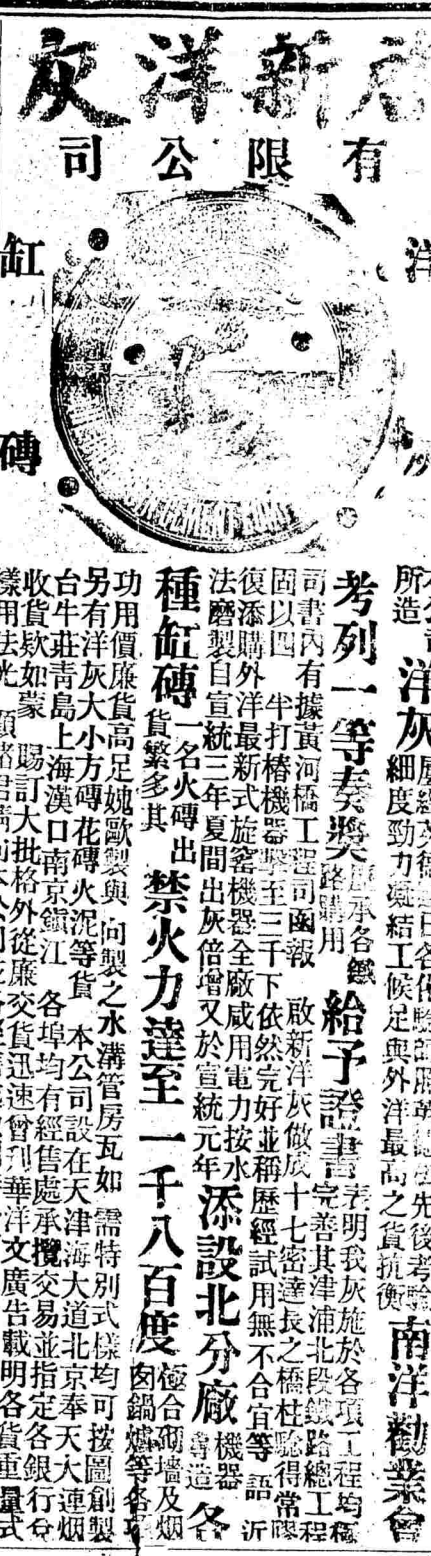 新洋灰
有限公司
洋
缸磚
所造
洋灰
先後考驗
細度勁力凝結工候足與外洋最高之貨抗衡
南洋勸業會
考列一等奏獎
歷承各鐵
路購用
給予證書
表明我灰施於各項工程均稱
完善其津浦北段鐵路總工程
司書內有據黃河橋工程司函報 啟新洋灰做成十七密達長之橋柱驗得常膠
固以四 半打樁機器擊至三千下依然完好並稱歷經試用無不合宜等 語近
復添購外洋最新式旋窰機器全廠咸用電力按水
法磨製自宣統三年夏間出灰倍增又於宣統元年
添設北分廠
機器
專造
各
種缸磚
一名火磚出
貨繁多其
禁火力達至一千八百度
極合砌墻及烟
囱鍋爐等各項
功用價廉貨高足媲歐製與 向製之水溝管房瓦如 需特別式樣均可按圖創製
另有洋灰大小方磚花磚火泥等貨 本公司設在天津海大道北京奉天大連烟
台牛莊青島上海漢口南京鎮江 各埠均有經售處承攬交易並指定各銀行兌
收貨欵如蒙 賜訂大批格外從廉交貨迅速曾刊華洋文廣告載明各貨重量式
樣用法光 顧諸君請向本公司